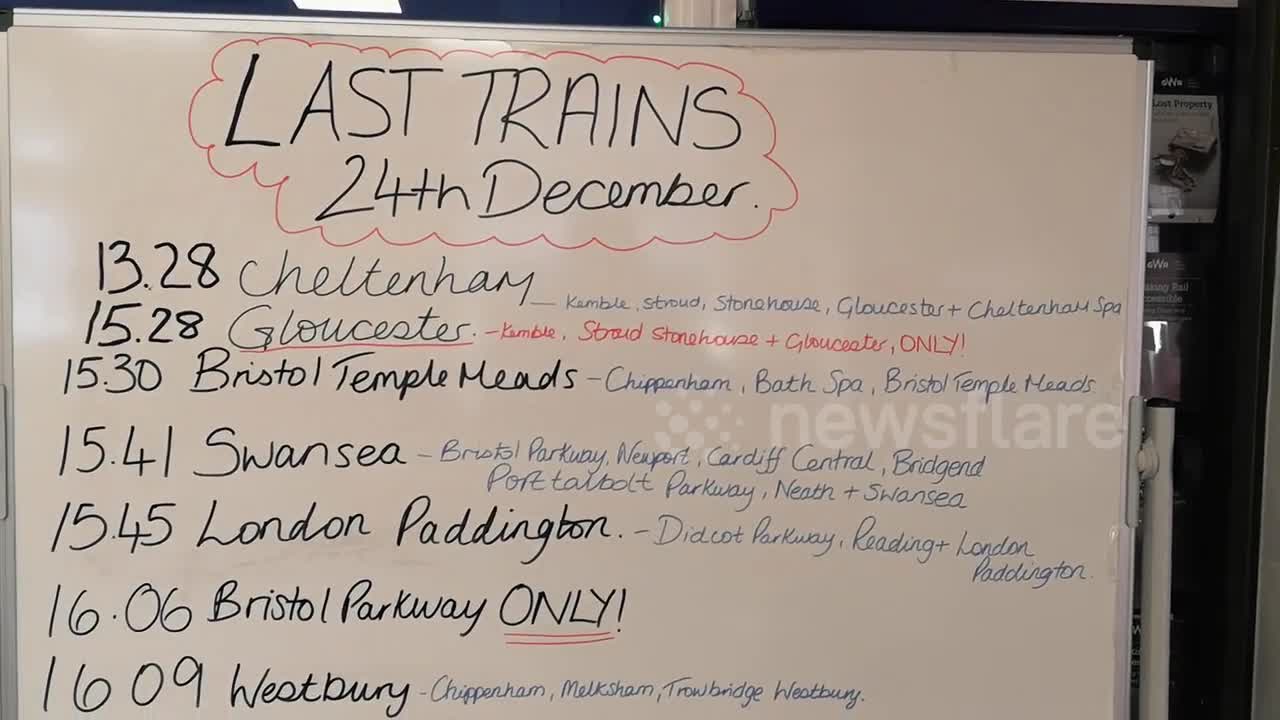 LAST TRAINS
24th December.
13.28 Cheltenham — Kemble, Stroud, Stonehouse, Gloucester + Cheltenham Spa
15.28 Gloucester. - Kemble, Stroud Stonehouse + Gloucester, ONLY!
15.30 Bristol Temple Meads - Chippenham, Bath Spa, Bristol Temple Meads.
15.41 Swansea - Bristol Parkway, Newport, Cardiff Central, Bridgend
Port talbolt Parkway, Neath + Swansea
15.45 London Paddington. - Didcot Parkway, Reading + London
Paddington.
16.06 Bristol Parkway ONLY!
16 09 Westbury - Chippenham, Melksham, Trowbridge Westbury.
newsflare
GWR
Lost Property
GWR